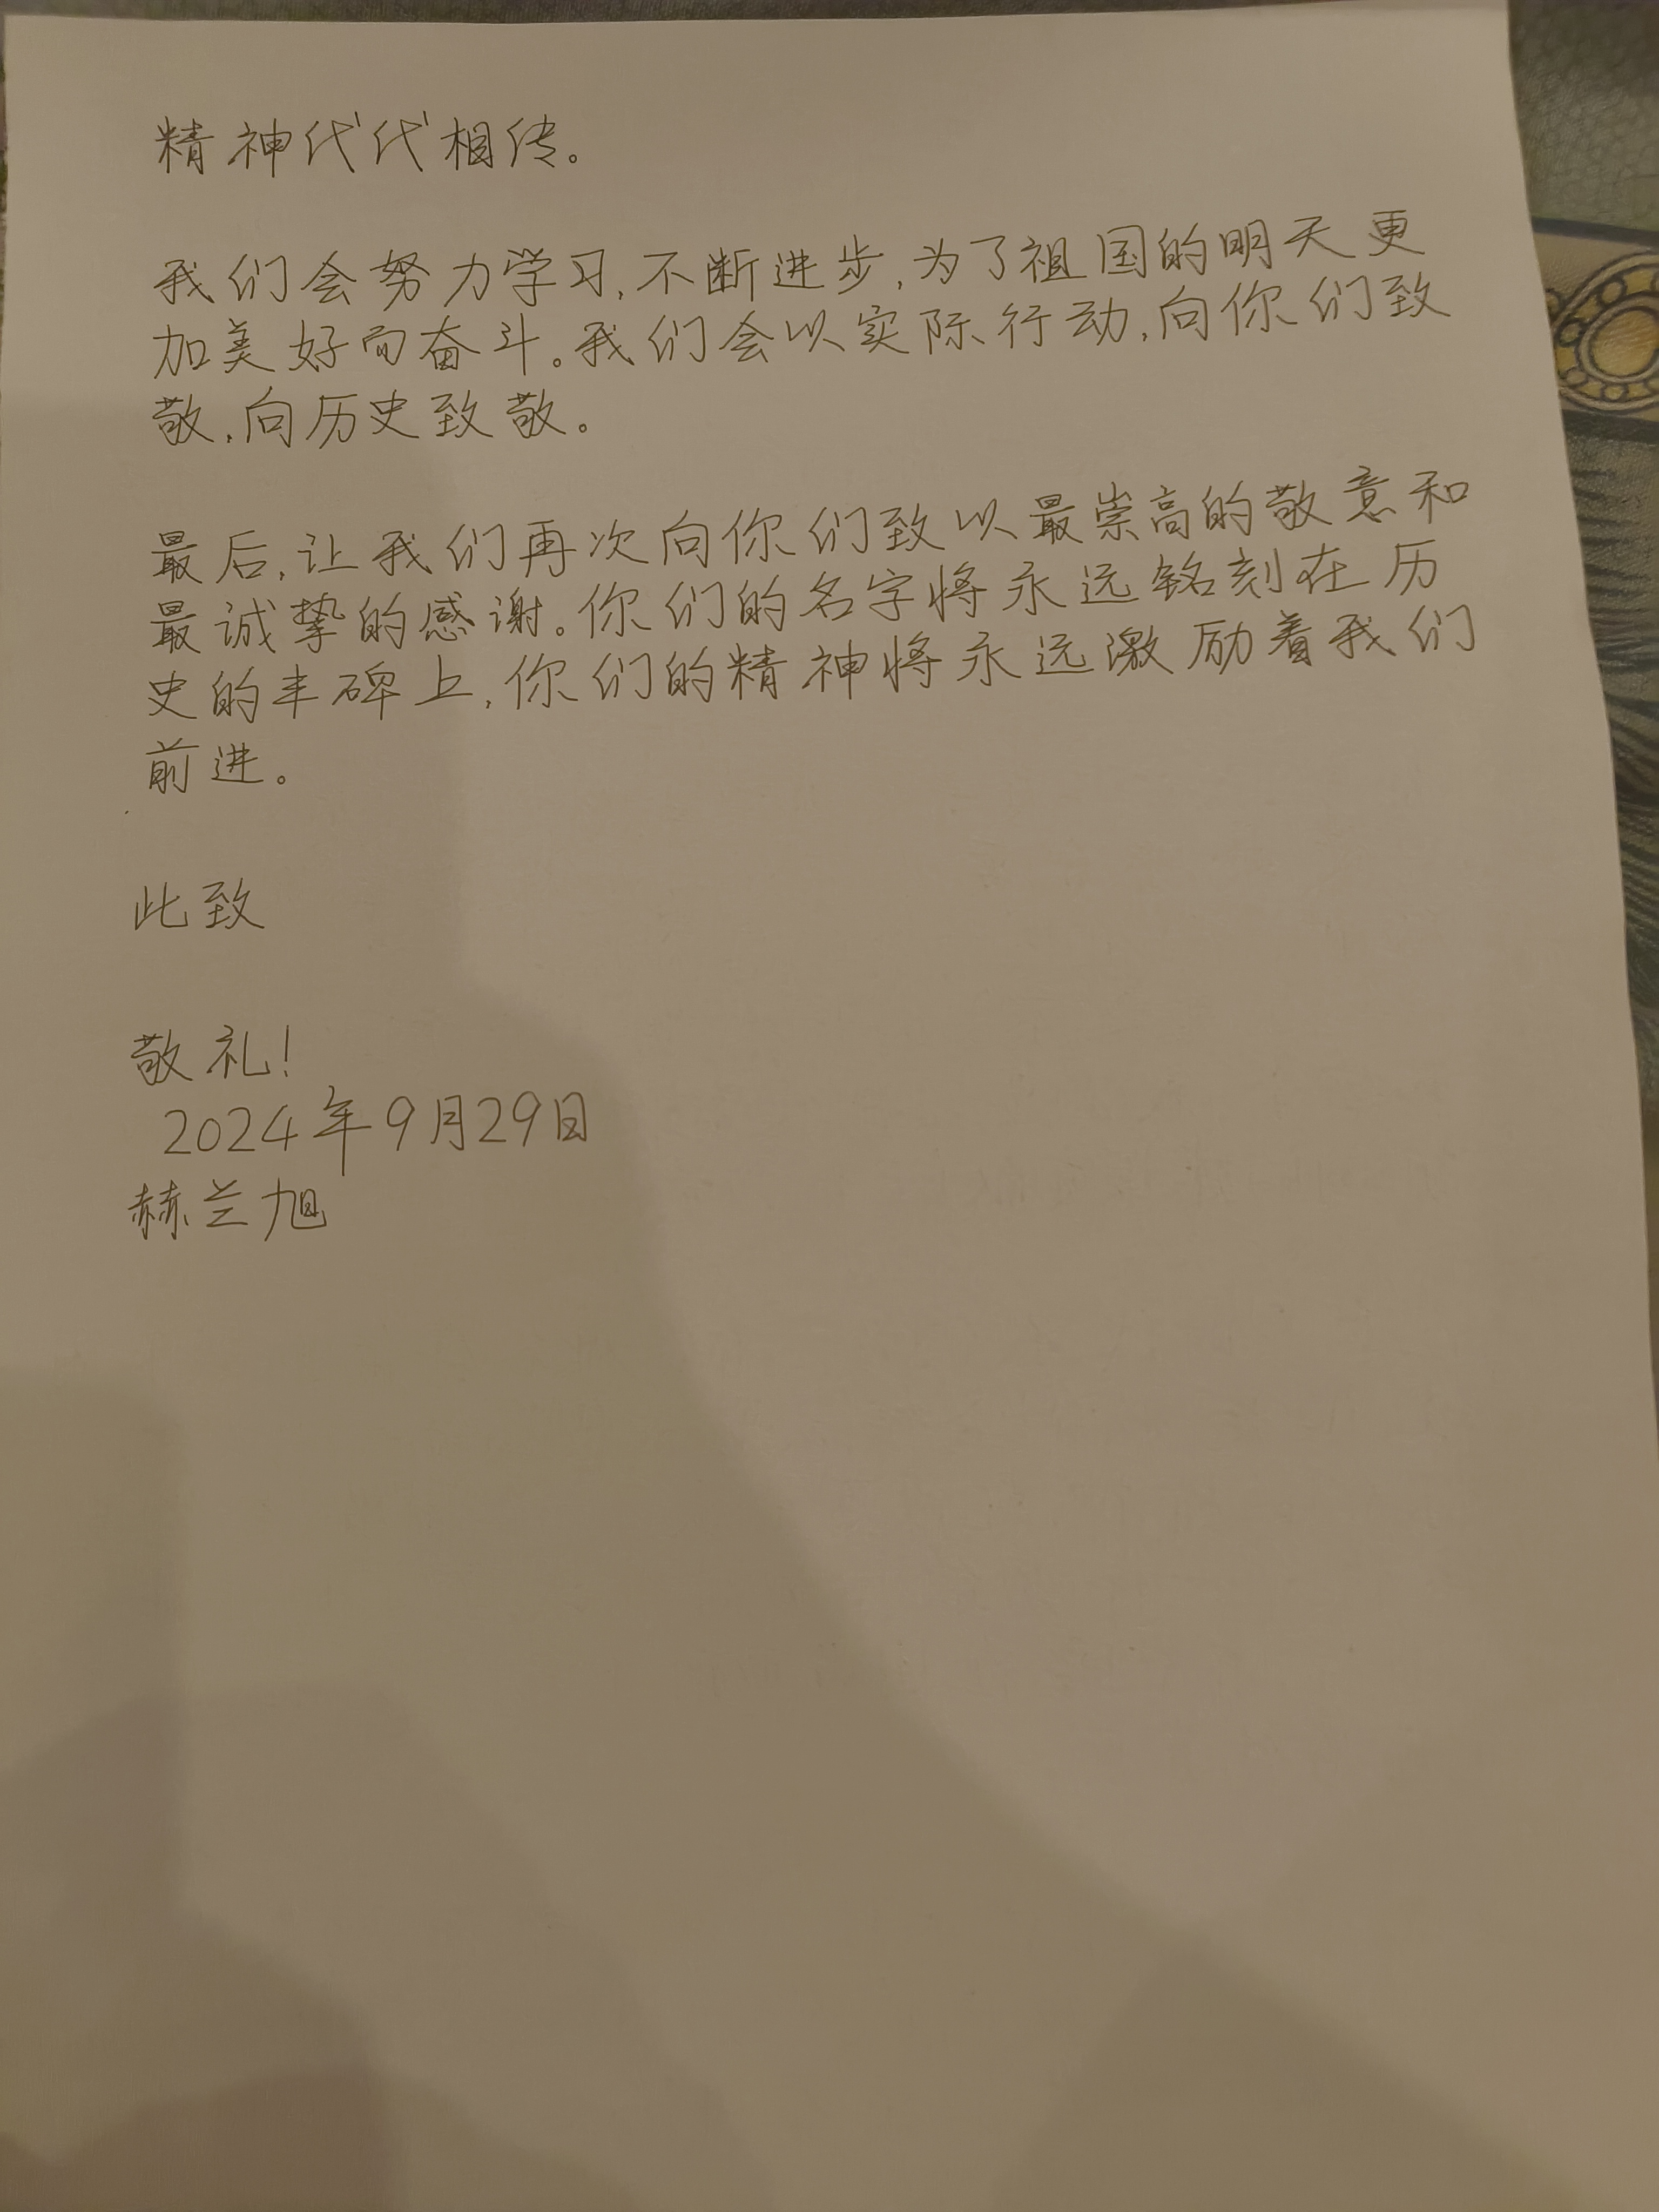 精神代代相传。
我们会努力学习,不断进步,为了祖国的明天更
加美好而奋斗。我们会以实际行动,向你们致
敬,向历史致敬。
最后,让我们再次向你们致以最崇高的敬意和
最诚挚的感谢。你们的名字将永远铭刻在历
史的丰碑上,你们的精神将永远激励着我们
前进。
此致
敬礼!
2024年9月29日
赫兰旭